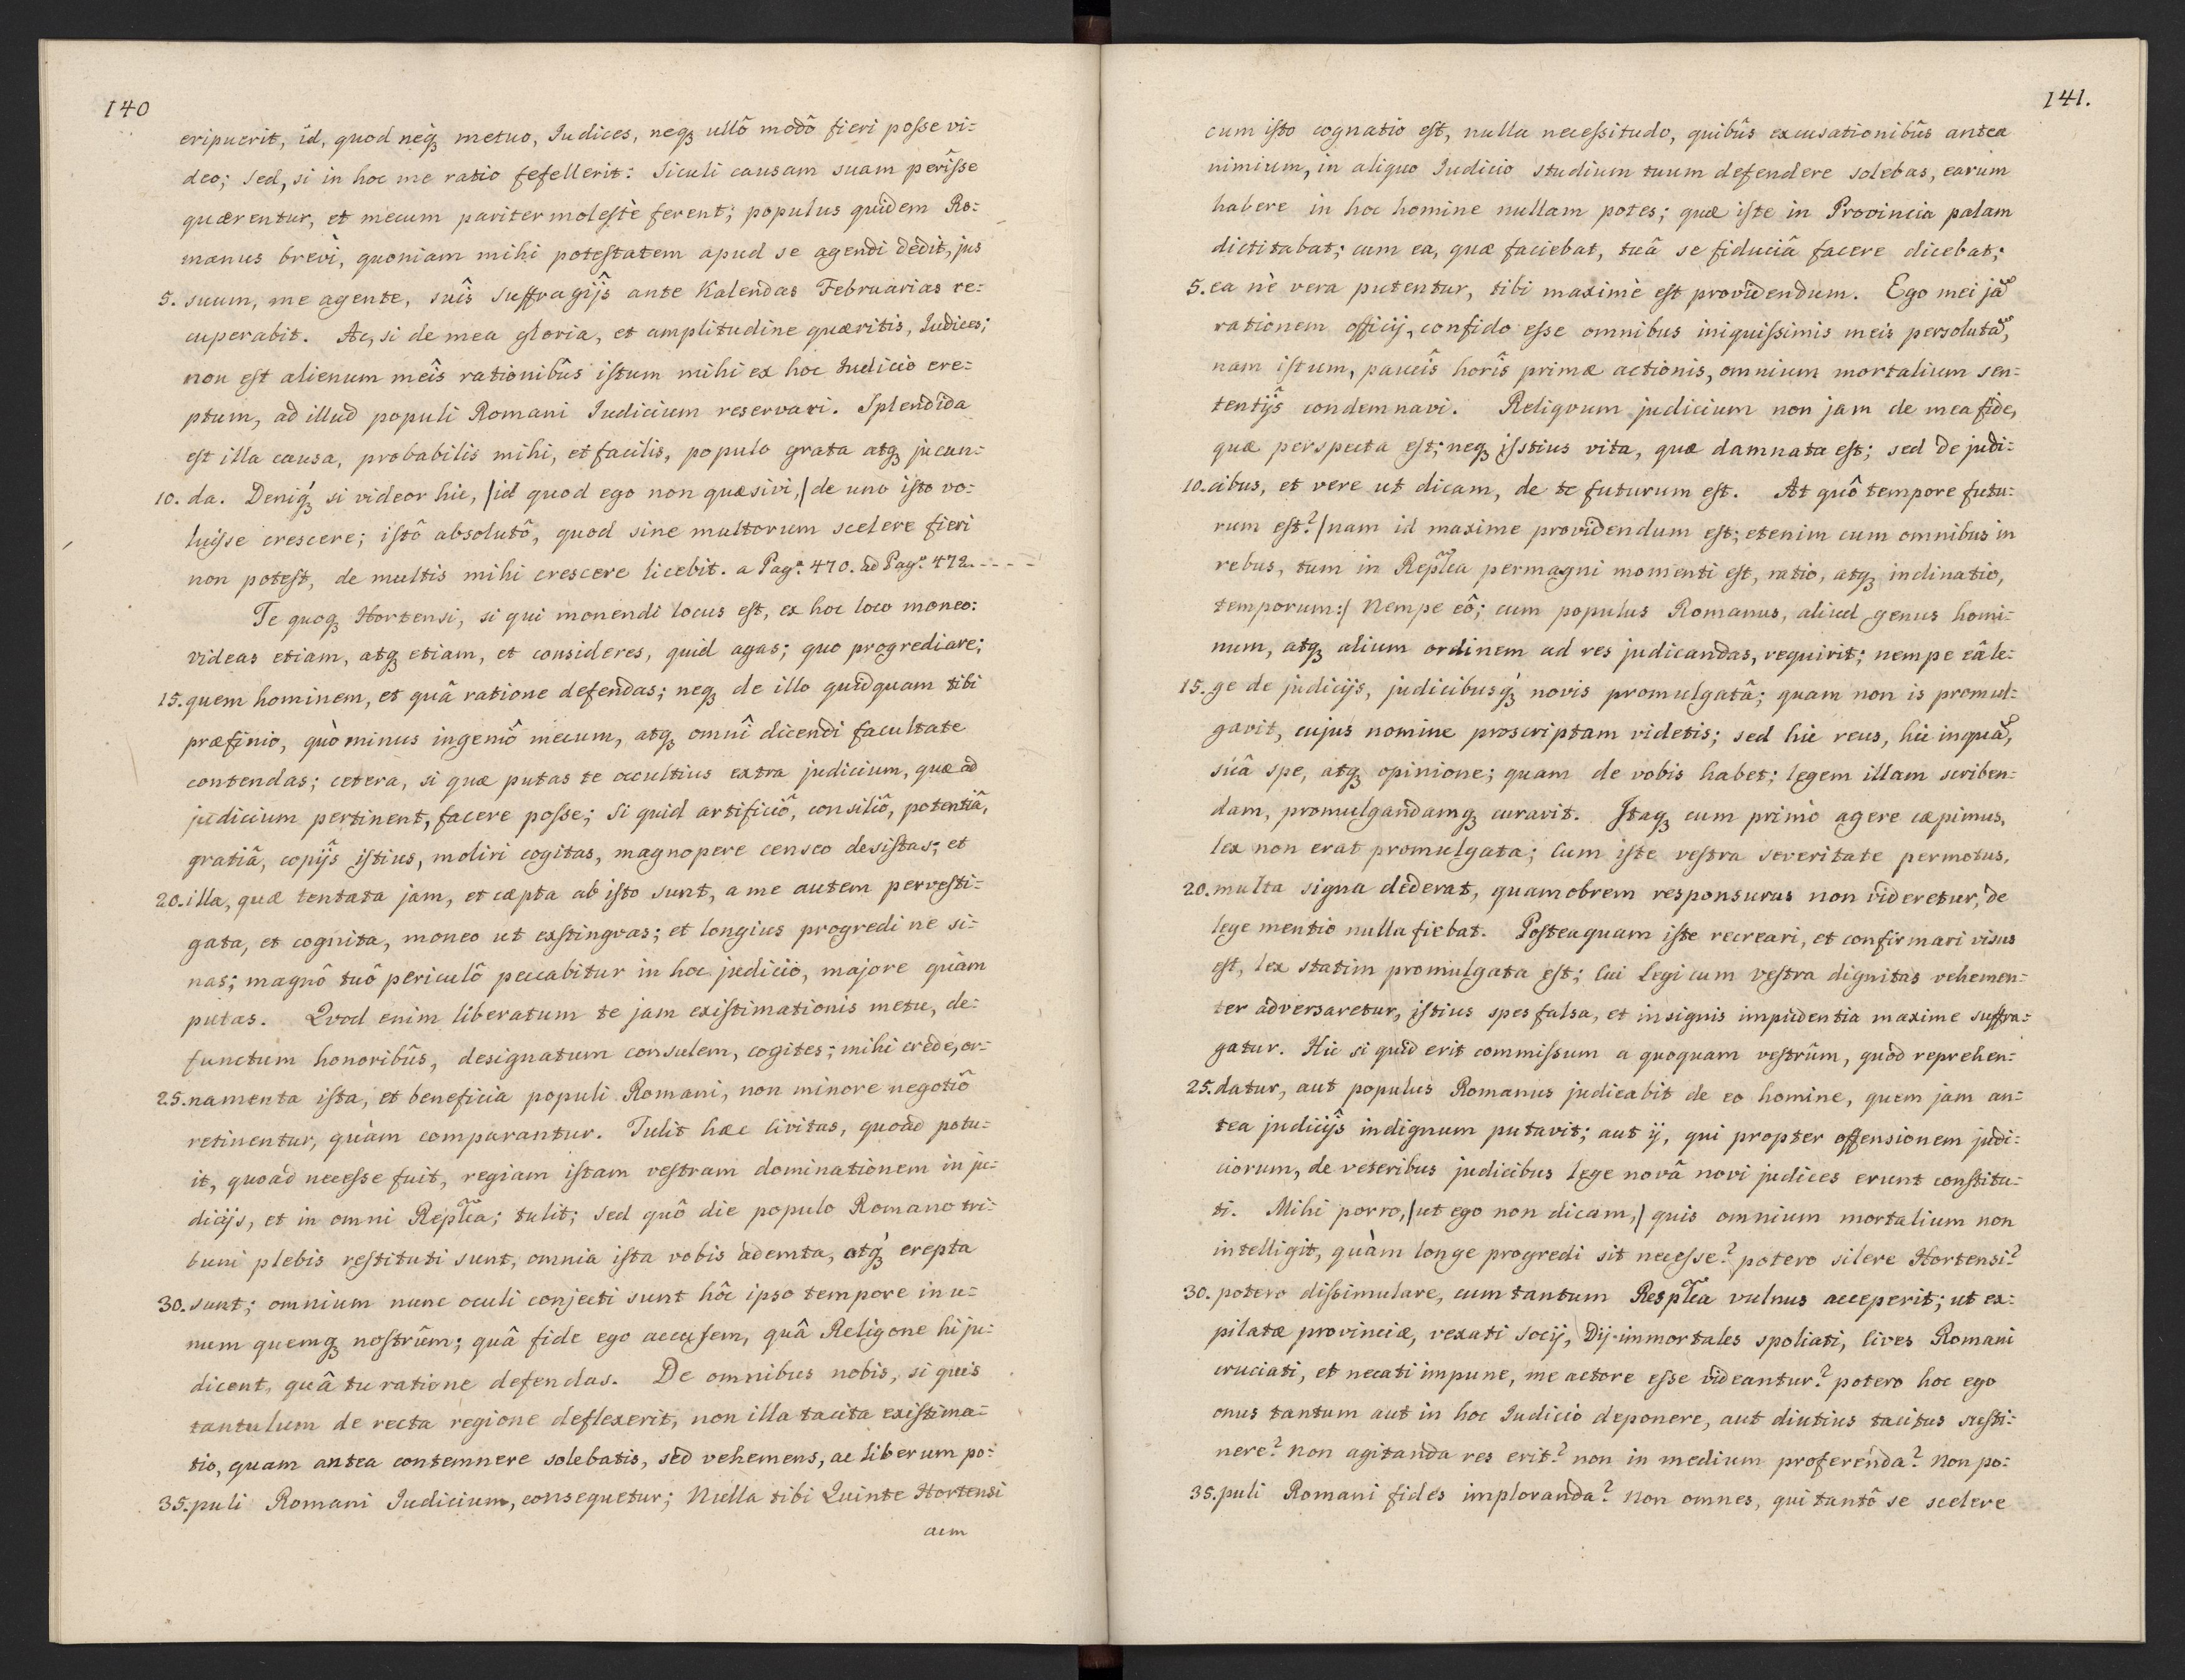 140
eripuerit, id, quod neq metuo, Iudices, neq ullô modô fieri posse vi=
deo; sed, si in hoc me ratio fefellerit: Siculi causam suam perîsse
quærentur, et mecum pariter molestè ferent; populus quidem Ro=
manus brevi, quoniam mihi potestatem apud se agendi dedit, jus
5. suum, me agente, suîs suffragijs ante Kalendas Februarias re=
cuperabit. Ac, si de mea gloria, et amplitudine quæritis, Iudices;
non est alienum meîs rationibûs istum mihi ex hoc Iudicio ere=
ptum, ad illud populi Romani Iudicium reservari. Splendida
est illa causa, probabilis mihi, et facilis, populo grata atq jucun=
10. da. Deniq si videor hic, /id quod ego non quæsivi,/ de uno isto vo=
luisse crescere; istô absolutô, quod sine multorum scelere fieri
non potest, de multis mihi crescere licebit. a Pag. 470. ad Pag. 472.----
Te quoq Hortensi, si qui monendi locus est, ex hoc loco moneo:
videas etiam, atq etiam, et consideres, quid agas; quo progrediare;
15. quem hominem, et quâ ratione defendas; neq de illo quidquam tibi
præfinio, quòminus ingeniô mecum, atq omnî dicendi facultate
contendas; cetera, si quæ putas te occultius extra judicium, quæ ad
judicium pertinent, facere posse; si quid artificiô, consiliô, potentiâ,
gratiâ, copijs istius, moliri cogitas, magnopere censeo desistas; et
20. illa, quæ tentata jam, et cæpta ab isto sunt, a me autem pervesti=
gata, et cognita, moneo ut exstingvas; et longius progredi ne si=
nas; magnô tuô periculô peccabitur in hoc judicio, majore quàm
putas. Qvod enim liberatum te jam existimationis metu, de=
functum honoribûs, designatum consulem, cogites; mihi crede, or=
25. namenta ista, et beneficia populi Romani, non minore negotiô
retinentur, quàm comparantur. Tulit hæc civitas, quoad potu=
it, quoad necesse fuit, regiam istam vestram dominationem in ju=
dicijs, et in omni Replca; tulit; sed quô die populo Romano tri=
buni plebis restituti sunt, omnia ista vobis ademta, atq erepta
30. sunt; omnium nunc oculi conjecti sunt hôc ipso tempore in u=
num quemq nostrûm; quâ fide ego accusem, quâ Religone hi ju=
dicent, quâ tu ratione defendas. De omnibus nobis, si quis
tantulum de recta regione deflexerit, non illa tacita existima=
tio, quam antea contemnere solebatis, sed vehemens, ac liberum po=
35. puli Romani Iudicium, consequetur; Nulla tibi Quinte Hortensi
cum
141.
cum isto cognatio est, nulla necessitudo, quibûs excusationibûs antea
nimium, in aliquo Iudicio studium tuum defendere solebas, earum
habere in hoc homine nullam potes; quæ iste in Provincia palam
dictitabat; cum ea, quæ faciebat, tuâ se fiduciâ facere dicebat;
5. ea nè vera putentur, tibi maximè est providendum. Ego mei jã
rationem officij, confido esse omnibus iniquissimis meis persolutã,
nam istum, paucîs horîs primæ actionis, omnium mortalium sen=
tentijs condemnavi. Reliqvum judicium non jam de mea fide,
quæ perspecta est; neq isstius vita, quæ damnata est; sed de judi=
10. cibus, et vere ut dicam, de te futurum est. At quô tempore futu=
rum est? /nam id maxime providendum est; etenim cum omnibus in
rebus, tum in Replca permagni momenti est, ratio, atq inclinatio,
temporum:/ Nempe eô; cum populus Romanus, aliud genus homi=
num, atq alium ordinem ad res judicandas, requirit; nempe eâ le=
15. ge de judicijs, judicibusq novis promulgatâ; quam non is promul=
gavit, cujus nomine proscriptam videtis; sed hic reus, hic inquã,
suâ spe, atq opinione; quam de vobis habet: legem illam scriben=
dam, promulgandamq curavit. Itaq cum primò agere cæpimus,
lex non erat promulgata; Cum iste vestra severitate permotus,
20. multa signa dederat, quamobrem responsurus non videretur, de
lege mentio nulla fiebat. Posteaquam iste recreari, et confirmari visus
est, lex statim promulgata est; Cui Legi cum vestra dignitas vehemen=
ter adversaretur, istius spes falsa, et insignis impudentia maxime suffra=
gatur. Hic si quid erit commissum a quoquam vestrûm, quòd reprehen=
25. datur, aut populus Romanus judicabit de eo homine, quem jam an=
tea judicijs indignum putavit; aut ij, qui propter offensionem judi=
ciorum, de veteribus judicibus lege novâ novi judices erunt constitu=
ti. Mihi porro, /ut ego non dicam,/ quis omnium mortalium non
intelligit, quàm longe progredi sit necesse? potero silere Hortensi?
30. potero dissimulare, cum tantum Resplca vulnus acceperit; ut ex=
pilatæ provinciæ, vexati Socij, Dij immortales spoliati, Cives Romani
cruciati, et necati impune, me actore esse videantur? potero hoc ego
onus tantum aut in hoc Iudicio deponere, aut diutius tacitus susti=
nere? Non agitanda res erit? non in medium proferenda? Non po=
35. puli Romani fides imploranda? Non omnes, qui tantô se scelere